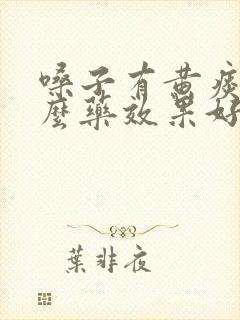 嗓子有黄痰
麼藥效果好
葉非夜